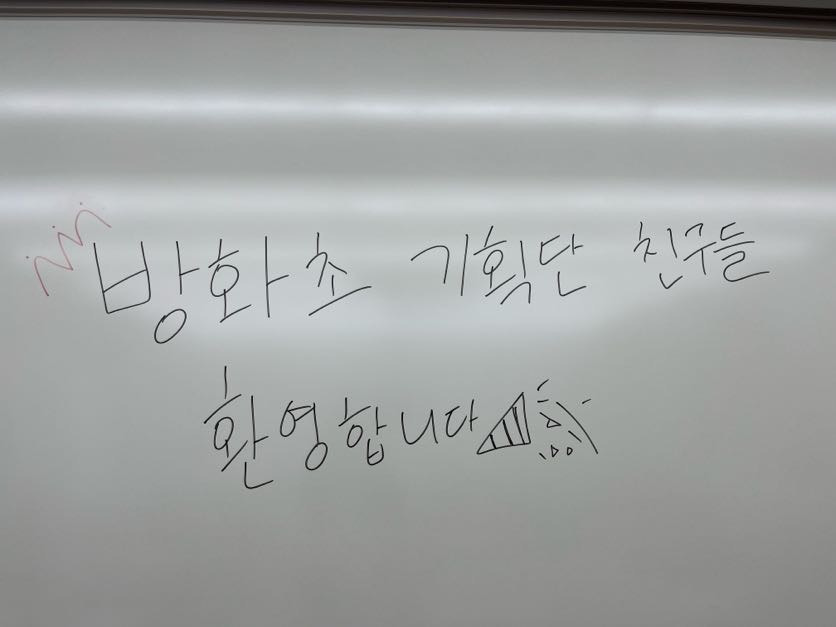 방화초 기획단 친구들
환영합니다